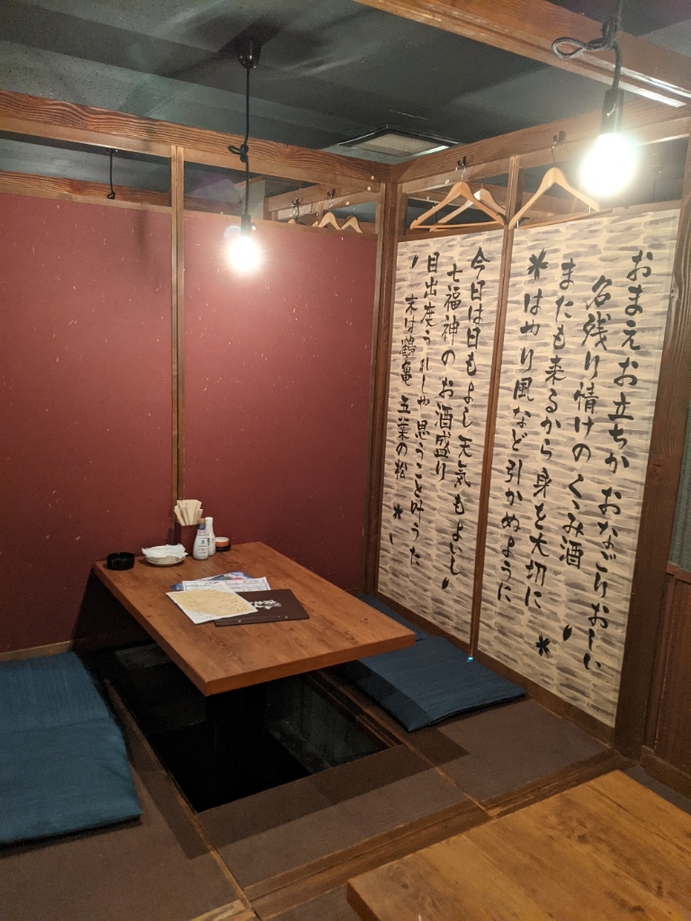 おまえお立ちか おなごりおしい
名残り情けの くゝみ酒
またも来るから 身を大切に
はやり風など 引かぬように
今日は日もよし 天気もよいし
七福神の お酒盛り
目出度うれしや 思うこと叶うた
末は鶴亀 五葉の松